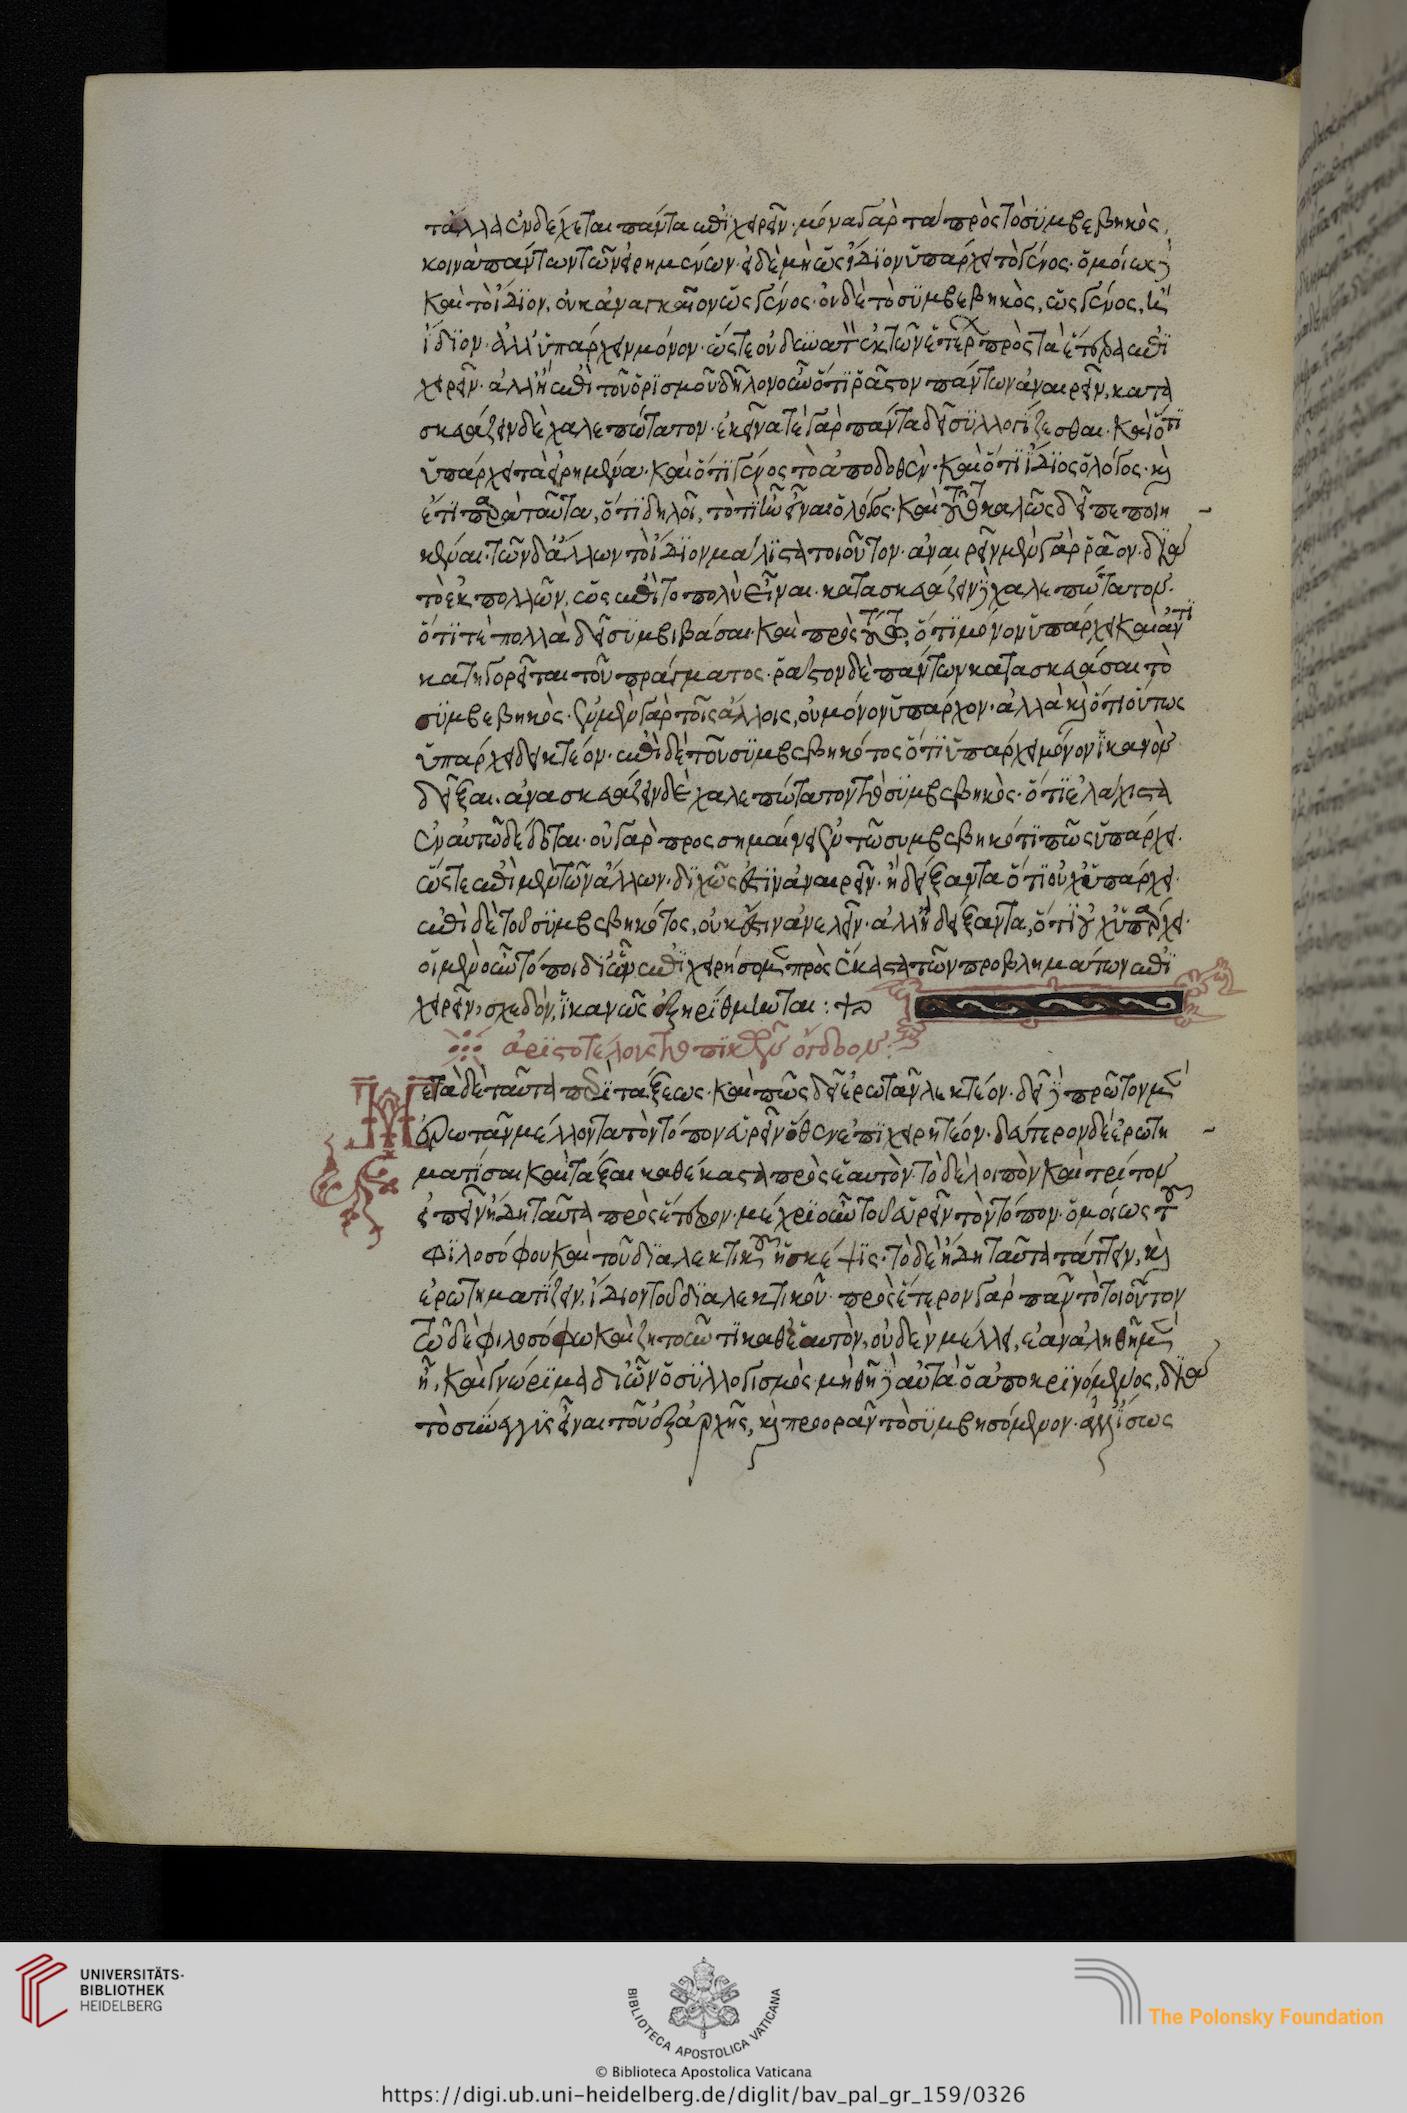 τἄλλα ἐνδέχεται πάντα ἐπιχειρεῖν· μόνα γὰρ τὰ πρὸς τὸ συμβεβηκὸς,
κοινὰ πάντων τῶν εἰρημένων· εἰ δὲ μὴ ὡς ἴδιον ὑπάρχει τὸ γένος· ὁμοίως δὲ
καὶ τὸ ἴδιον, οὐκ ἀναγκαῖον ὡς γένος· οὐδὲ τὸ συμβεβηκὸς, ὡς γένος, ἢ
ἴδιον· ἀλλ' ὑπάρχειν μόνον· ὥστε οὐ δυνατὸν ἐκ τῶν ἑτέρων πρὸς τὰ ἕτερα ἐπι
χειρεῖν· ἀλλ' ἢ ἐπὶ τοῦ ὁρισμοῦ δῆλον οὖν ὅτι ῥᾷστον πάντων ἀναιρεῖν, κατα
σκευάζειν δὲ χαλεπώτατον· ἐκεῖνά τε γὰρ πάντα δεῖ συλλογίζεσθαι· καὶ ὅτι
ὑπάρχει τὰ εἰρημένα· καὶ ὅτι γένος τὸ ἀποδοθὲν· καὶ ὅτι ἴδιος ὁ λόγος· καὶ
ἔτι παρὰ ταῦτα, ὅτι δηλοῖ, τὸ τί ἦν εἶναι ὁ λόγος· καὶ τοῦτο καλῶς δεῖ πεποιη
κέναι· τῶν δ' ἄλλων τὸ ἴδιον μάλιστα τοιοῦτον· ἀναιρεῖν μὲν γὰρ ῥᾷον· διὰ
τὸ ἐκ πολλῶν, ὡς ἐπὶ τὸ πολὺ εἶναι· κατασκευάζειν δὲ χαλεπώτατον·
ὅτι τε πολλὰ δεῖ συμβιβάσαι· καὶ πρὸς τούτῳ, ὅτι μόνον ὑπάρχει καὶ ἀντι
κατηγορεῖται τοῦ πράγματος· ῥᾷστον δὲ πάντων κατασκευάσαι τὸ
συμβεβηκὸς· ἐν μὲν γὰρ τοῖς ἄλλοις, οὐ μόνον ὑπάρχον· ἀλλὰ καὶ ὅτι οὕτως
ὑπάρχει δεικτέον· ἐπὶ δὲ τοῦ συμβεβηκότος ὅτι ὑπάρχει μόνον ἱκανὸν
δεῖξαι. ἀνασκευάζειν δὲ χαλεπώτατον τὸ συμβεβηκὸς· ὅτι ἐλάχιστα
ἐν αὐτῷ δέδοται· οὐ γὰρ προσσημαίνει ἐν τῷ συμβεβηκότι πῶς ὑπάρχει·
ὥστε ἐπὶ μὲν τῶν ἄλλων· διχῶς ἔστιν ἀναιρεῖν· ἢ δείξαντα ὅτι οὐχ ὑπάρχει·
ἐπὶ δὲ τοῦ συμβεβηκότος, οὐκ ἔστιν ἀνελεῖν· ἀλλ' ἢ δείξαντα, ὅτι οὐχ ὑπάρχει·
οἱ μὲν οὖν τόποι δι' ὧν ἐπιχειρήσομεν πρὸς ἕκαστα τῶν προβλημάτων ἐπι
χειρεῖν, σχεδὸν, ἱκανῶς ἐξηρίθμηνται :+
ἀριστοτέλους τοπικῶν ὄγδοον:
Μετὰ δὲ ταῦτα περὶ τάξεως· καὶ πῶς δεῖ ἐρωτᾶν λεκτέον· δεῖ δὲ πρῶτον μὲν
ἐρωτᾶν μέλλοντα τὸν τόπον εὑρεῖν ὅθεν ἐπιχειρητέον· δεύτερον δὲ ἐρωτη
ματίσαι καὶ τάξαι καθέκαστα πρὸς ἑαυτὸν· τὸ δὲ λοιπὸν καὶ τρίτον
εἰπεῖν ἤδη ταῦτα πρὸς ἕτερον· μέχρι οὖν τοῦ εὑρεῖν τὸν τόπον· ὁμοίως τοῦ
φιλοσόφου καὶ τοῦ διαλεκτικοῦ ἡ σκέψις· τὸ δὲ ἤδη ταῦτα τάττειν, καὶ
ἐρωτηματίζειν, ἴδιον τοῦ διαλεκτικοῦ· πρὸς ἕτερον γὰρ πᾶν τὸ τοιοῦτον
τῷ δὲ φιλοσόφῳ καὶ ζητοῦντι καθ' ἑαυτὸν, οὐδὲν μέλλει, ἐὰν ἀληθῆ μὲν
ᾖ, καὶ γνώριμα δι' ὧν ὁ συλλογισμὸς· μὴ θῇ δὲ αὐτὰ ὁ ἀποκρινόμενος, διὰ
τὸ σύνεγγυς εἶναι τοῦ ἐξ ἀρχῆς, καὶ προορᾶν τὸ συμβησόμενον· ἀλλ' ἴσως
UNIVERSITÄTS-
BIBLIOTHEK
HEIDELBERG
BIBLIOTECA APOSTOLICA VATICANA
The Polonsky Foundation
© Biblioteca Apostolica Vaticana
https://digi.ub.uni-heidelberg.de/diglit/bav_pal_gr_159/0326